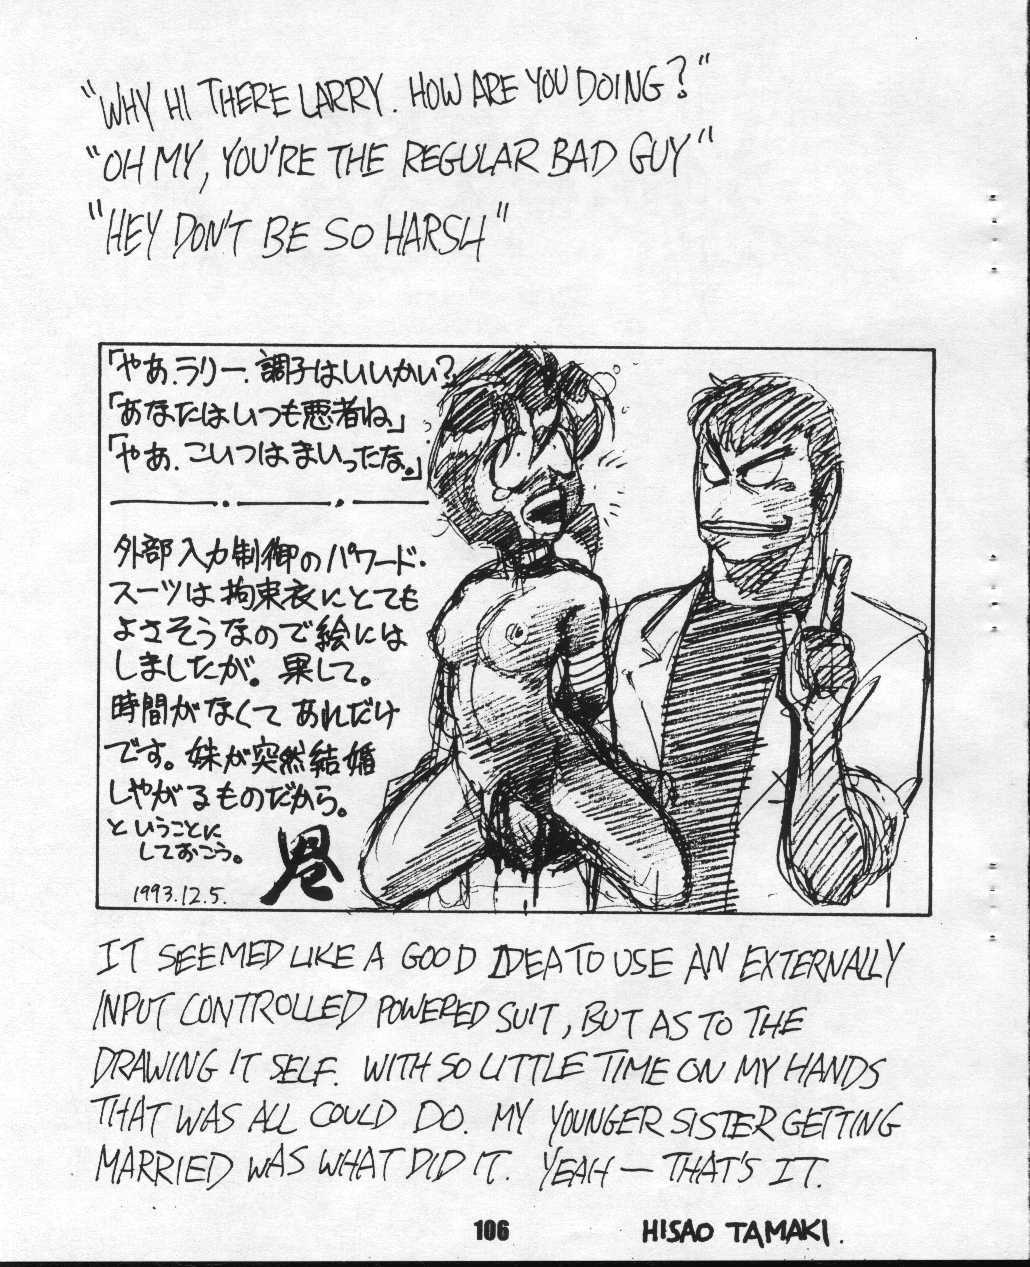 "WHY HI THERE LARRY. HOW ARE YOU DOING?"
"OH MY, YOU'RE THE REGULAR BAD GUY"
"HEY DON'T BE SO HARSH"
「やあ、ラリー、調子はいいかい?
「あなたはいつも悪者ね」
「やあ、こいつはまいったな。」
外部入力制御のパワード・
スーツは拘束衣にとても
よさそうなので絵には
しましたが。果して。
時間がなくてあれだけ
です。妹が突然結婚
しやがるものだから。
ということに
しておこう。
1993.12.5.
IT SEEMED LIKE A GOOD IDEA TO USE AN EXTERNALLY
INPUT CONTROLLED POWERED SUIT, BUT AS TO THE
DRAWING IT SELF. WITH SO LITTLE TIME ON MY HANDS
THAT WAS ALL COULD DO. MY YOUNGER SISTER GETTING
MARRIED WAS WHAT DID IT. YEAH — THAT'S IT.
106
HISAO TAMAKI.